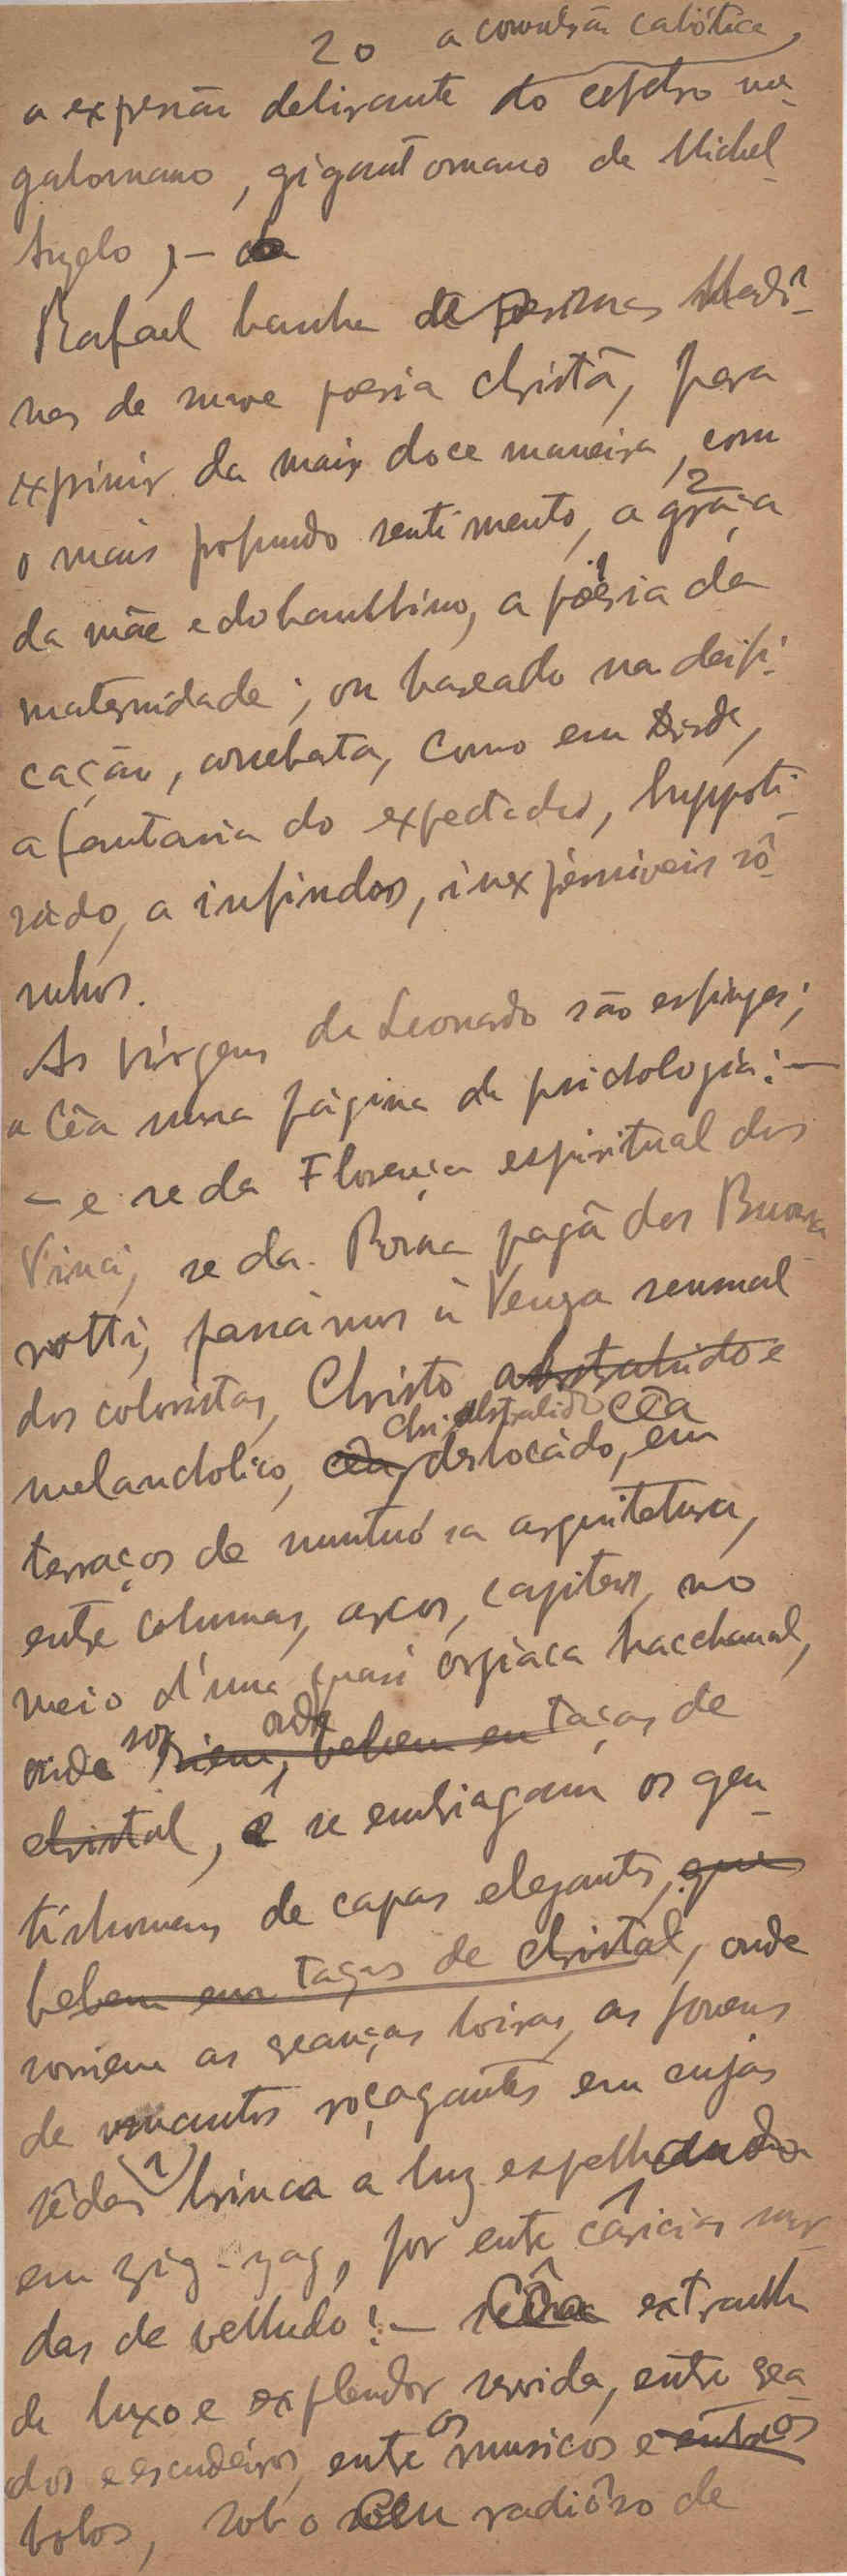 20 a convulsão cahótica,
a expressão delirante do espetro me-
galomano, gigantomano de Michel-
Angelo ;–
Rafael banha as Madô-
nas de suave poesia christã, para
exprimir da mais doce maneira, com
o mais profundo sentimento, a graça
da mãe e do bambino, a poesia da
maternidade ; ou baseado na deifi-
cação, arrebata, como em
a fantasia do espectador, hyppoti-
sado, a infindos, inexprimiveis sô-
nhos.
As Virgens de Leonardo são esfinges ;
a Cêa uma página de psichologia : –
– e se da Florença espiritual dos
Vinci, se da Roma pagã dos Buona
rotti, passâmos á Veneza sensual
dos coloristas, Christo abstrahido e
chr. abstrahido cêa
melancholico, cêa, deslocádo, em
terraços de suntuósa arquitetura,
entre columnas, arcos, capiteis, no
meio d'uma quasi orgiaca bacchanal,
onde riem, onde bebem em taças de
christal, e se embriagam os gen-
tishomens de capas elegantes, que
bebem em taças de christal, onde
sorriem as creanças loiras, as jovens
de mantos roçagantes em cujas
sêdas brinca a luz espelhando
em zig-zag, por entre carícias sur-
das de velludo ! – Cêa extranha
de luxo e explendor servida, entre crea
dos e escudeiros, entre os musicos e entre os
bobos, sob o Ceu radiôso de